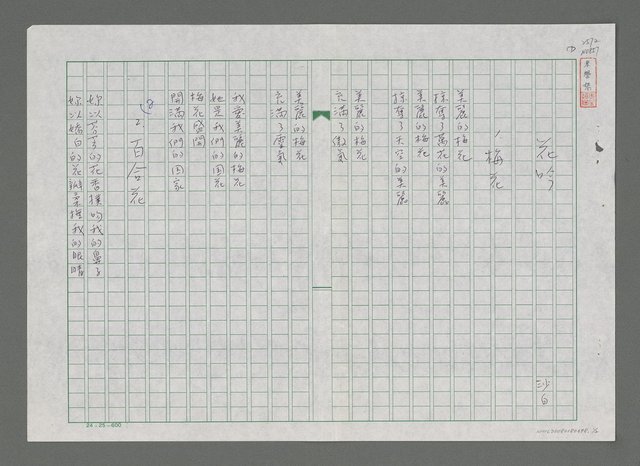 花吟
沙白
1. 梅花
美麗的梅花
掠奪了萬花的美麗
美麗的梅花
掠奪了天空的美麗
美麗的梅花
充滿了傲氣
美麗的梅花
充滿了靈氣
我愛美麗的梅花
她是我們的國花
梅花盛開
開滿我們的國家
2. 百合花
妳以芬芳的花香撲吻我的鼻子
妳以嬌白的花瓣柔撫我的眼睛
24×25=600